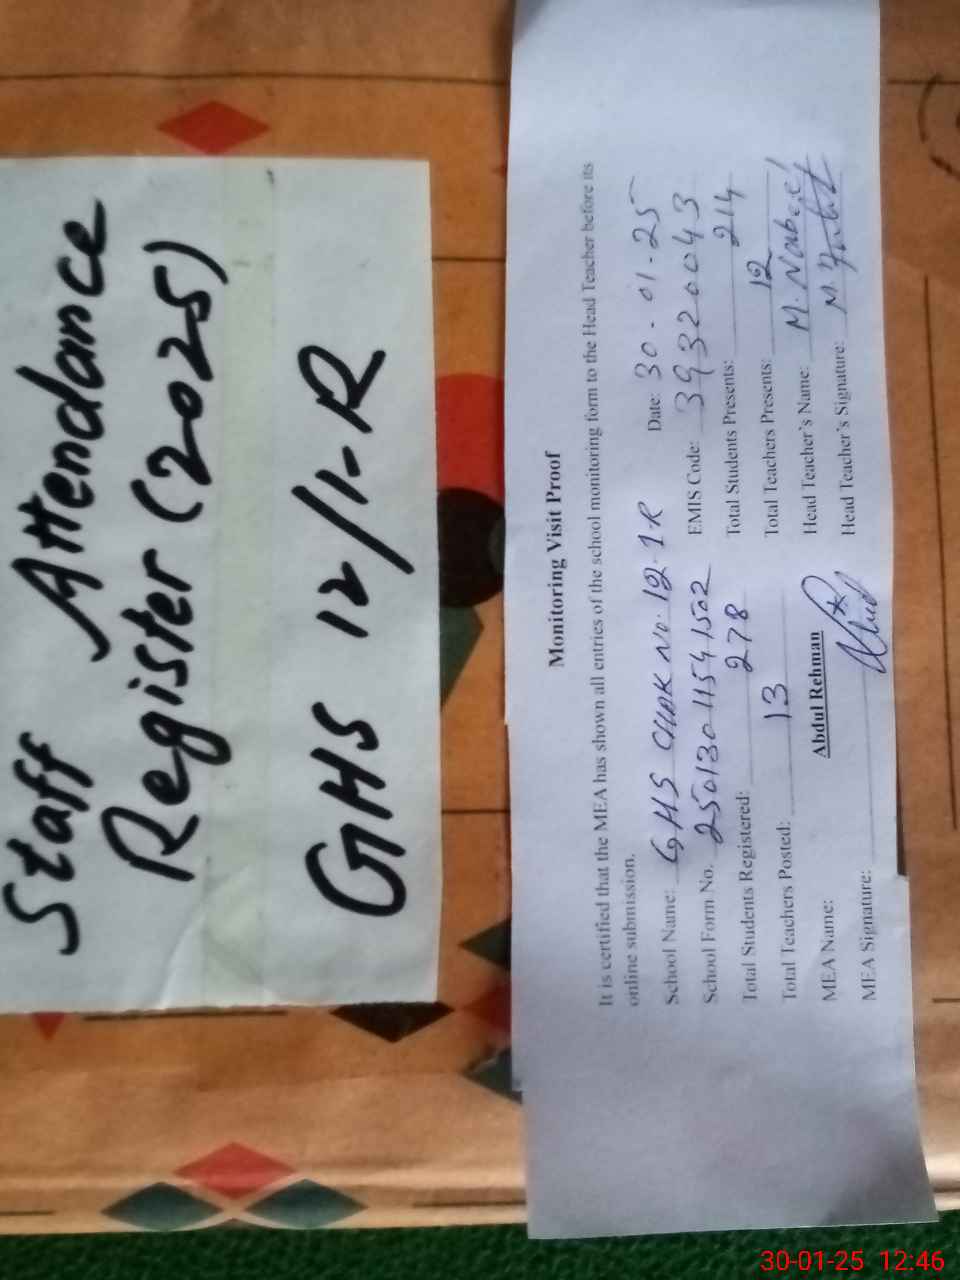 Staff Attendance
Register (2025)
GHS 12/1-R
Monitoring Visit Proof
It is certified that the MEA has shown all entries of the school monitoring form to the Head Teacher before its
online submission.
School Name: GHS CHAK No. 12-1R Date: 30-01-25
School Form No. 250130115941502 EMIS Code: 39320043
Total Students Registered: 278 Total Students Presents: 214
Total Teachers Posted: 13 Total Teachers Presents: 12
MEA Name: Abdul Rehman Head Teacher's Name: M. Nabeel
MEA Signature: Head Teacher's Signature: M.
30-01-25 12:46